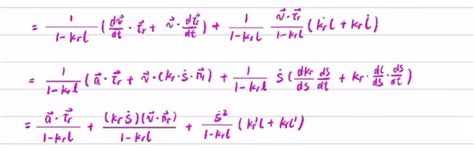 = \frac{1}{1-k_r l} (\frac{d\vec{v}}{dt} \cdot \vec{\tau_r} + \vec{v} \cdot \frac{d\vec{\tau_r}}{dt}) + \frac{1}{1-k_r l} \frac{\vec{v} \cdot \vec{\tau_r}}{1-k_r l} (\dot{k_r} l + k_r \dot{l})
= \frac{1}{1-k_r l} (\vec{a} \cdot \vec{\tau_r} + \vec{v} \cdot (k_r \cdot \dot{s} \cdot \vec{n_r})) + \frac{1}{1-k_r l} \dot{s} (\frac{dk_r}{ds} \frac{ds}{dt} l + k_r \cdot \frac{dl}{ds} \cdot \frac{ds}{dt})
= \frac{\vec{a} \cdot \vec{\tau_r}}{1-k_r l} + \frac{(k_r \dot{s})(\vec{v} \cdot \vec{n_r})}{1-k_r l} + \frac{\dot{s}^2}{1-k_r l} (k_r' l + k_r l')